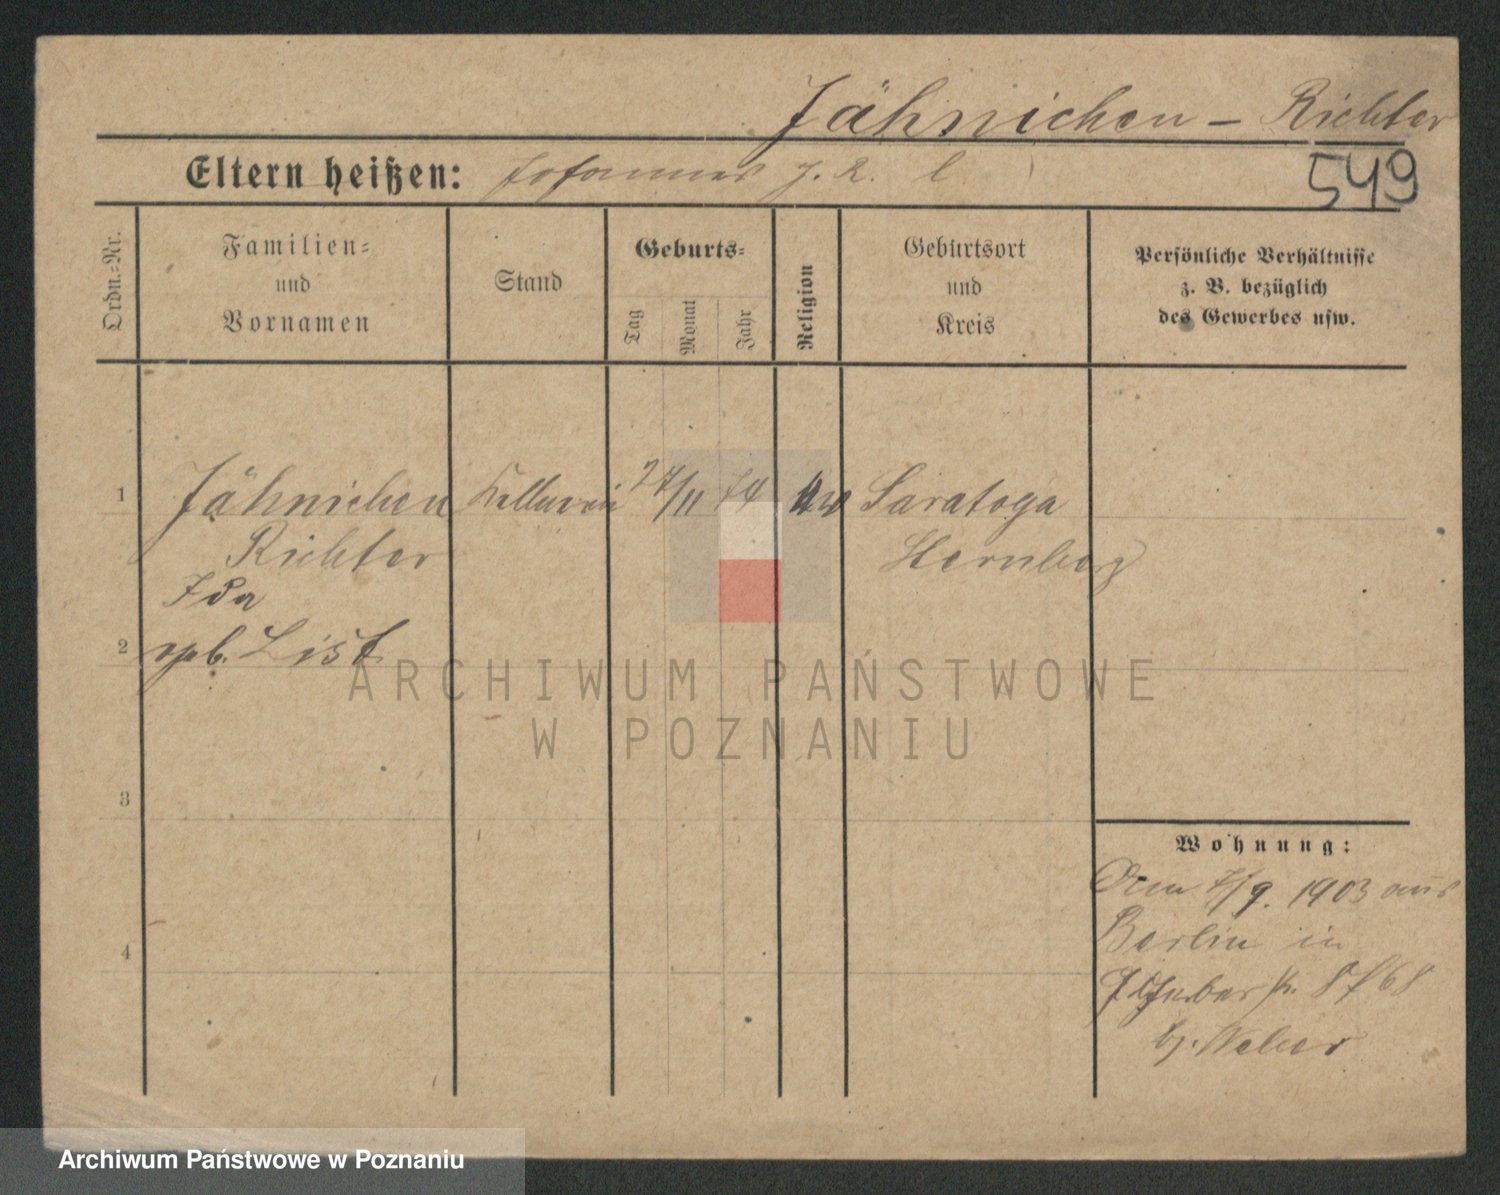 Jähnichen - Richter
549
Eltern heißen: Johannes J. R. L
Ordn.=Nr.
Familien=
und
Vornamen
Stand
Geburts=
Tag
Monat
Jahr
Religion
Geburtsort
und
Kreis
Persönliche Verhältnisse
z. B. bezüglich
des Gewerbes usw.
1
Jähnichen
Richter
Ida
geb. List
Kellnerin
27/11 74
Saratoga
Hernberg
2
3
4
Wohnung:
Vom 7/9. 1903 aus
Berlin in
68
bj. Weber
ARCHIWUM PAŃSTWOWE
W POZNANIU
Archiwum Państwowe w Poznaniu